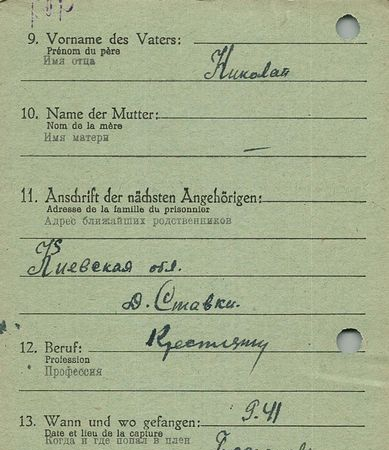 9. Vorname des Vaters:
Prénom du père
Имя отца
Николай
10. Name der Mutter:
Nom de la mère
Имя матери
—
11. Anschrift der nächsten Angehörigen:
Adresse de la famille du prisonnier
Адрес ближайших родственников
Киевская обл.
д. Ставки.
12. Beruf:
Profession
Профессия
13. Wann und wo gefangen:
9.41
Date et lieu de la capture
Когда и где попал в плен